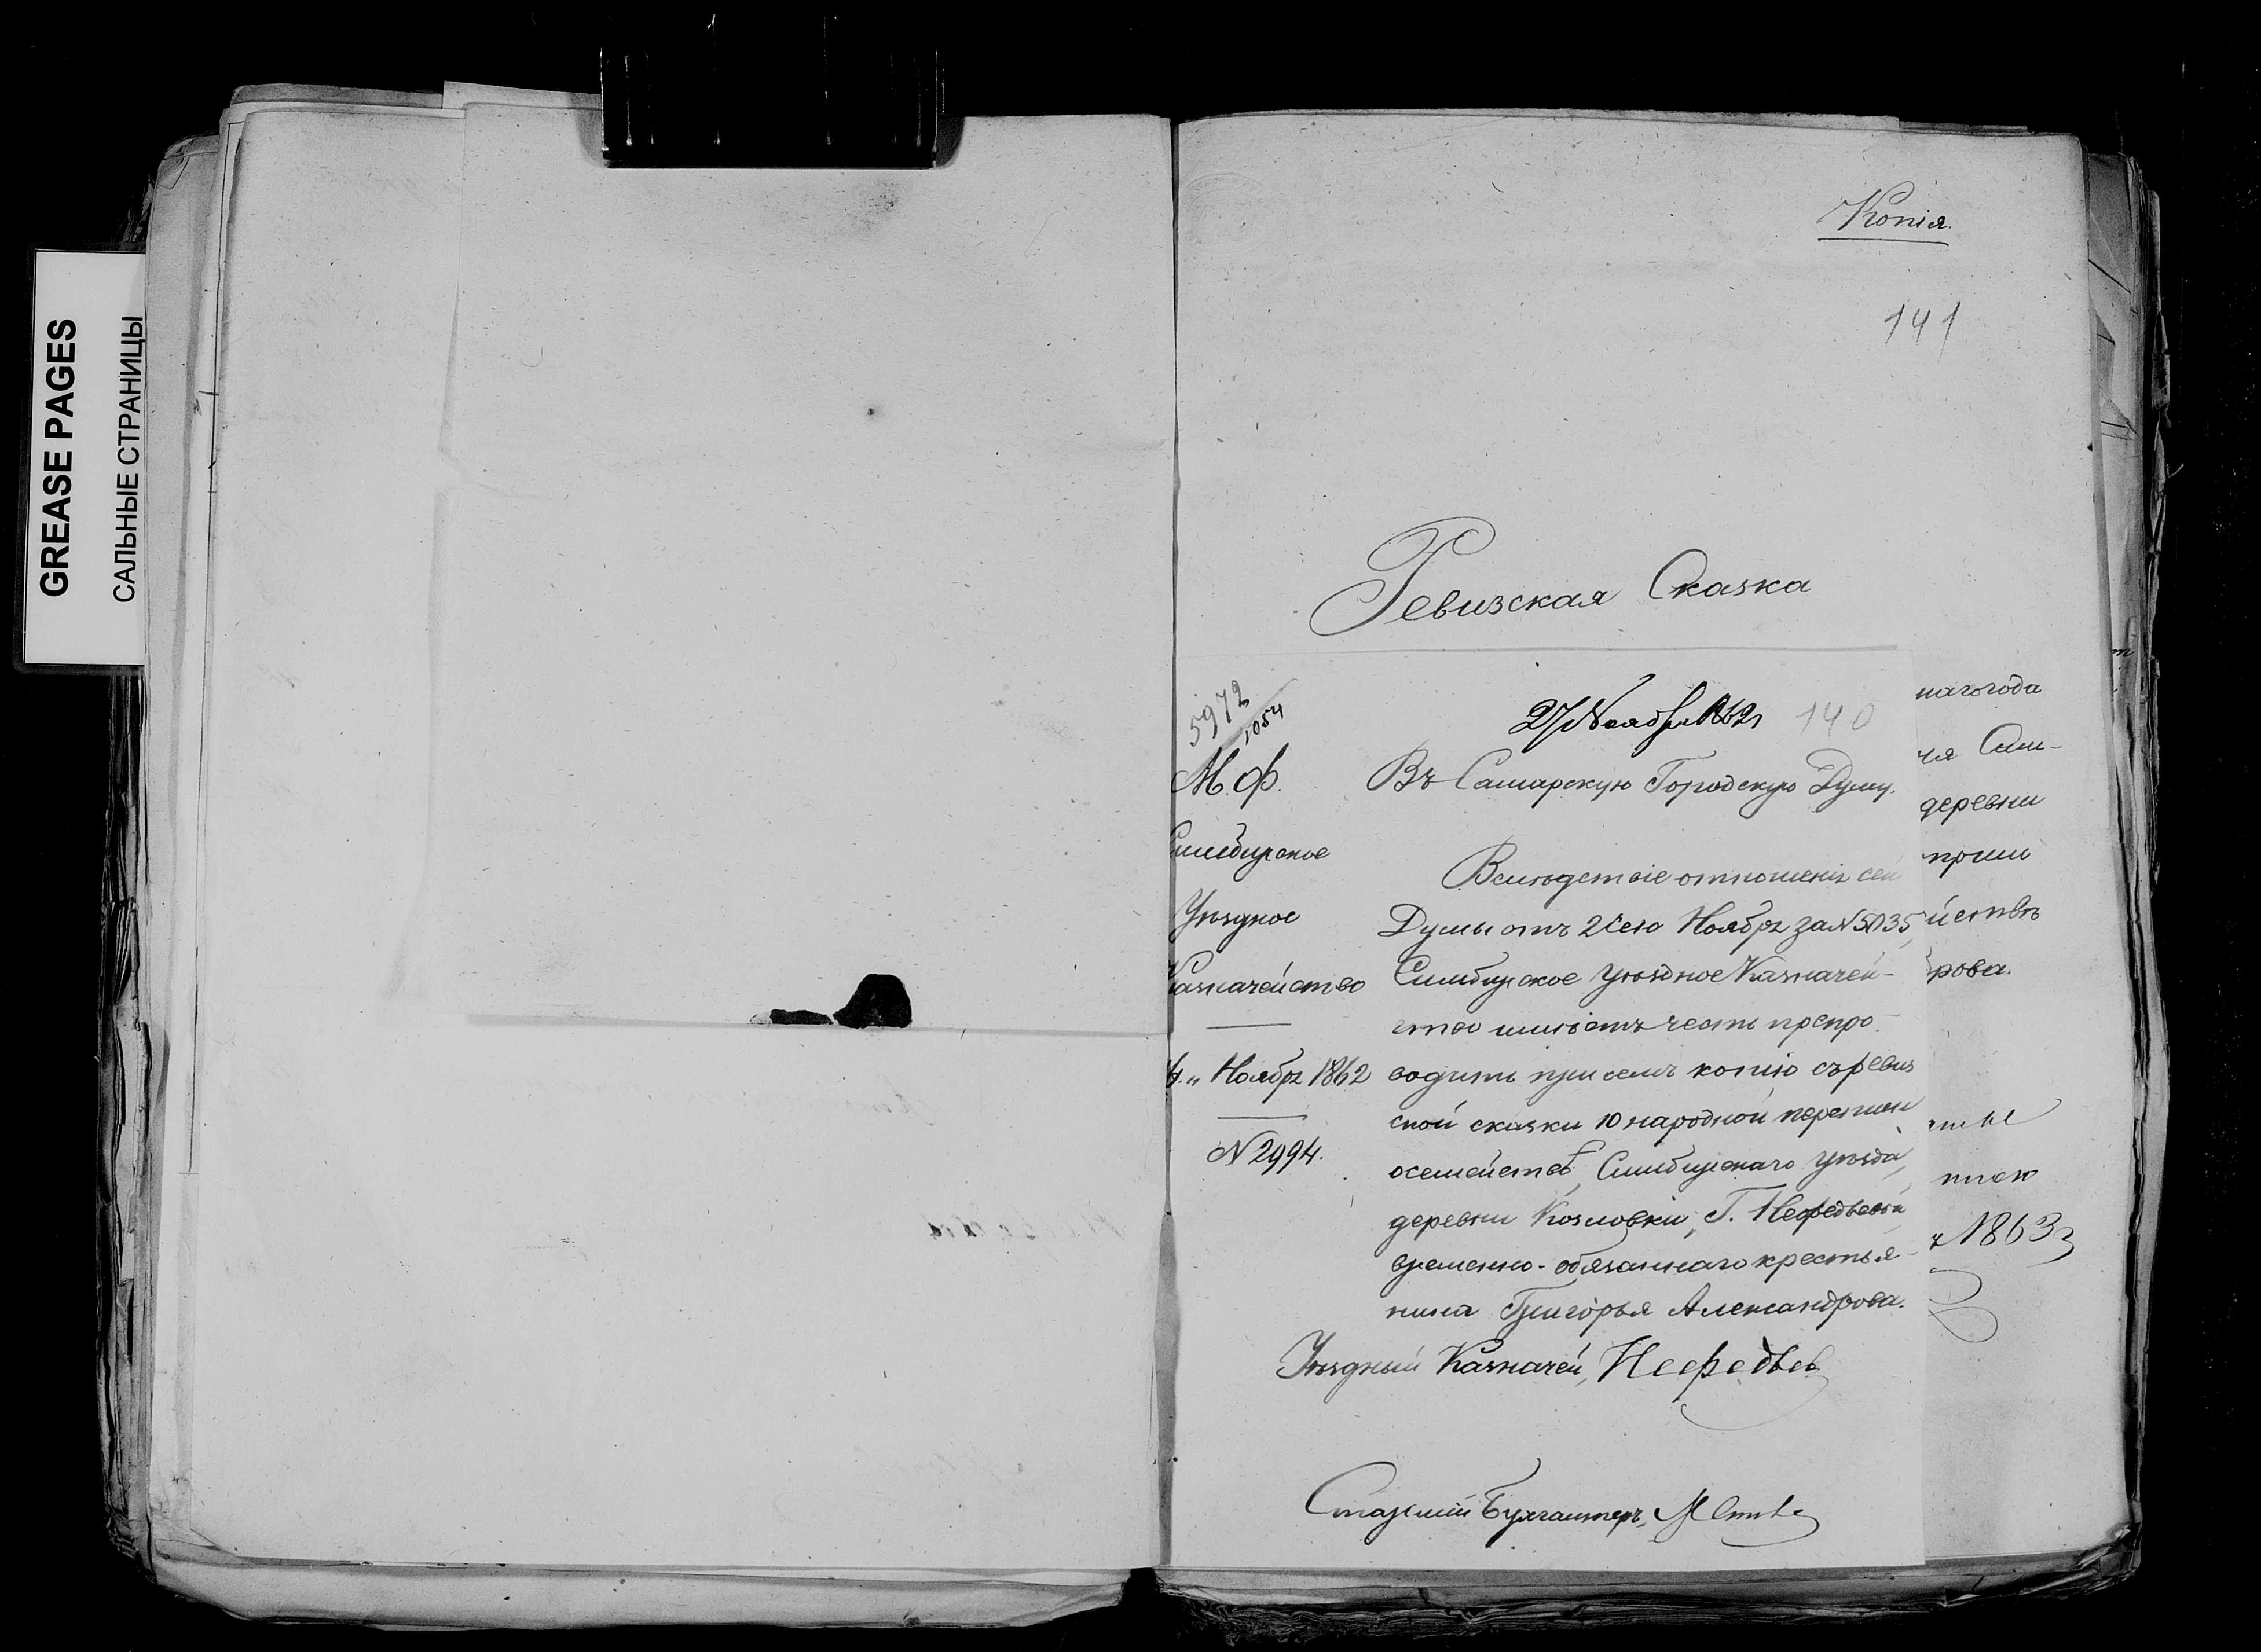 GREASE PAGES
САЛЬНЫЕ СТРАНИЦЫ
Копія.
141
Ревизская Сказка
5972
1054
27 Ноября 1862 г
140
М. Ф.
Симбирское
Уѣздное
Казначейство
Ноября 1862
N 2994.
Въ Самарскую Городскую Думу.
Вслѣдствіе отношенія сей
Думы отъ сего Ноября за N 5035,
Симбирское уѣздное Казначей-
ство имѣетъ честь препро-
водить при семъ копію съ ревиз
ской сказки 10 народной переписи
о семействѣ, Симбирскаго уѣзда,
деревни Козловки, Г. Нефедьевой
временно-обязаннаго крестья-
нина Григорья Александрова.
Уѣздный Казначей, Нефедьев
Старшій Бухгалтеръ,
наго года
ия Сим-
деревни
при
йствѣ
рова.
1863 г